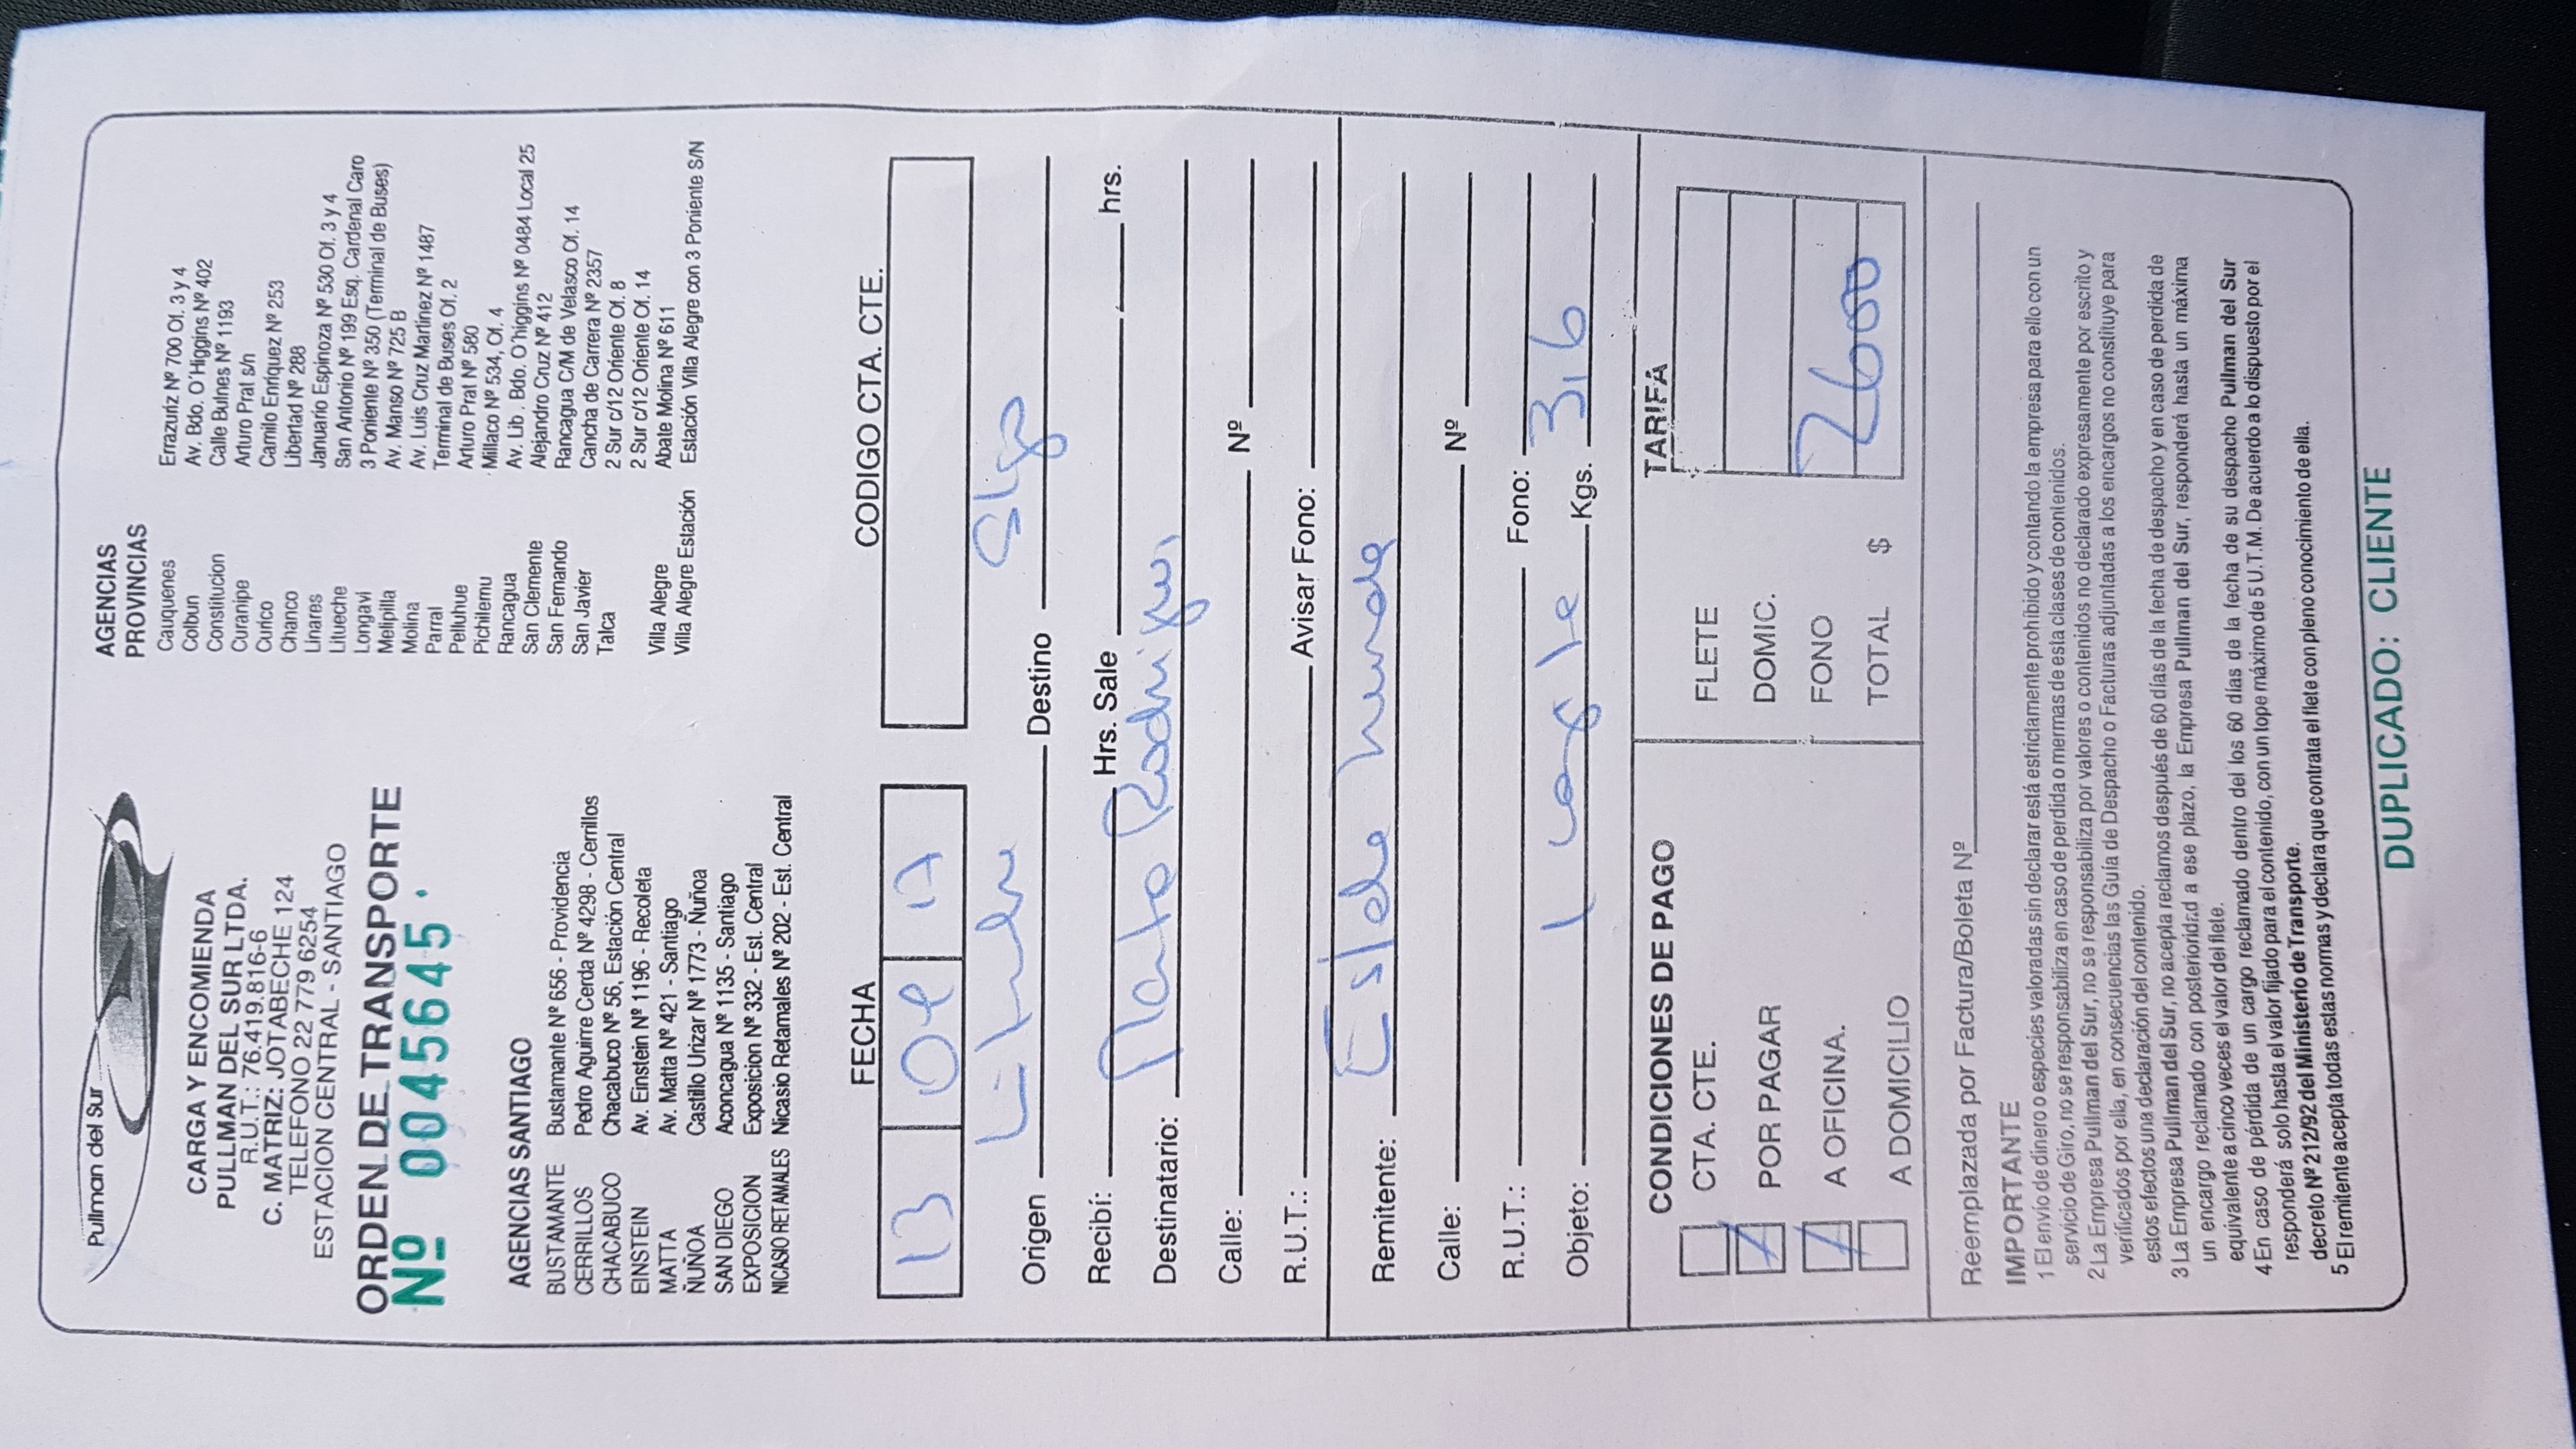 Pullman del Sur
CARGA Y ENCOMIENDA
PULLMAN DEL SUR LTDA.
R.U.T.: 76.419.816-6
C. MATRIZ: JOTABECHE 124
TELEFONO 22 779 6254
ESTACION CENTRAL - SANTIAGO
ORDEN DE TRANSPORTE
Nº 0045645
AGENCIAS PROVINCIAS
Cauquenes Errazuriz Nº 700 Of. 3 y 4
Colbun Av. Bdo. O'Higgins Nº 402
Constitucion Calle Bulnes Nº 1193
Curanipe Arturo Prat s/n
Curico Camilo Enriquez Nº 253
Chanco Libertad Nº 288
Linares Januario Espinoza Nº 530 Of. 3 y 4
Litueche San Antonio Nº 199 Esq. Cardenal Caro
Longavi 3 Poniente Nº 350 (Terminal de Buses)
Melipilla Av. Manso Nº 725 B
Molina Av. Luis Cruz Martinez Nº 1487
Parral Terminal de Buses Of. 2
Pelluhue Arturo Prat Nº 580
Pichilemu Millaco Nº 534, Of. 4
Rancagua Av. Lib . Bdo. O'higgins Nº 0484 Local 25
San Clemente Alejandro Cruz Nº 412
San Fernando Rancagua C/M de Velasco Of. 14
San Javier Cancha de Carrera Nº 2357
Talca 2 Sur c/12 Oriente Of. 8
2 Sur c/12 Oriente Of. 14
Villa Alegre Abate Molina Nº 611
Villa Alegre Estación Estación Villa Alegre con 3 Poniente S/N
AGENCIAS SANTIAGO
BUSTAMANTE Bustamante Nº 656 - Providencia
CERRILLOS Pedro Aguirre Cerda Nº 4298 - Cerrillos
CHACABUCO Chacabuco Nº 56, Estación Central
EINSTEIN Av. Einstein Nº 1196 - Recoleta
MATTA Av. Matta Nº 421 - Santiago
ÑUÑOA Castillo Urizar Nº 1773 - Ñuñoa
SAN DIEGO Aconcagua Nº 1135 - Santiago
EXPOSICION Exposicion Nº 332 - Est. Central
NICASIO RETAMALES Nicasio Retamales Nº 202 - Est. Central
FECHA CODIGO CTA. CTE.
13 09 17
Origen Destino Stgo
Recibí: Hrs. Sale hrs.
Destinatario: Rodriguez
Calle: Nº
R.U.T.: Avisar Fono:
Remitente:
Calle: Nº
R.U.T.: Fono:
Objeto: 1 Kgs. 316
CONDICIONES DE PAGO TARIFA
CTA. CTE. FLETE
POR PAGAR DOMIC.
A OFICINA. FONO
A DOMICILIO TOTAL $ 2600
Reemplazada por Factura/Boleta Nº
IMPORTANTE
1 El envío de dinero o especies valoradas sin declarar está estrictamente prohibido y contando la empresa para ello con un
servicio de Giro, no se responsabiliza en caso de perdida o mermas de esta clases de contenidos.
2 La Empresa Pullman del Sur, no se responsabiliza por valores o contenidos no declarado expresamente por escrito y
verificados por ella, en consecuencias las Guía de Despacho o Facturas adjuntadas a los encargos no constituye para
estos efectos una declaración del contenido.
3 La Empresa Pullman del Sur, no acepta reclamos después de 60 días de la fecha de despacho y en caso de perdida de
un encargo reclamado con posterioridad a ese plazo, la Empresa Pullman del Sur, responderá hasta un máxima
equivalente a cinco veces el valor del flete.
4 En caso de pérdida de un cargo reclamado dentro del los 60 días de la fecha de su despacho Pullman del Sur
responderá solo hasta el valor fijado para el contenido, con un tope máximo de 5 U.T.M. De acuerdo a lo dispuesto por el
decreto Nº 212/92 del Ministerio de Transporte.
5 El remitente acepta todas estas normas y declara que contrata el flete con pleno conocimiento de ella.
DUPLICADO: CLIENTE